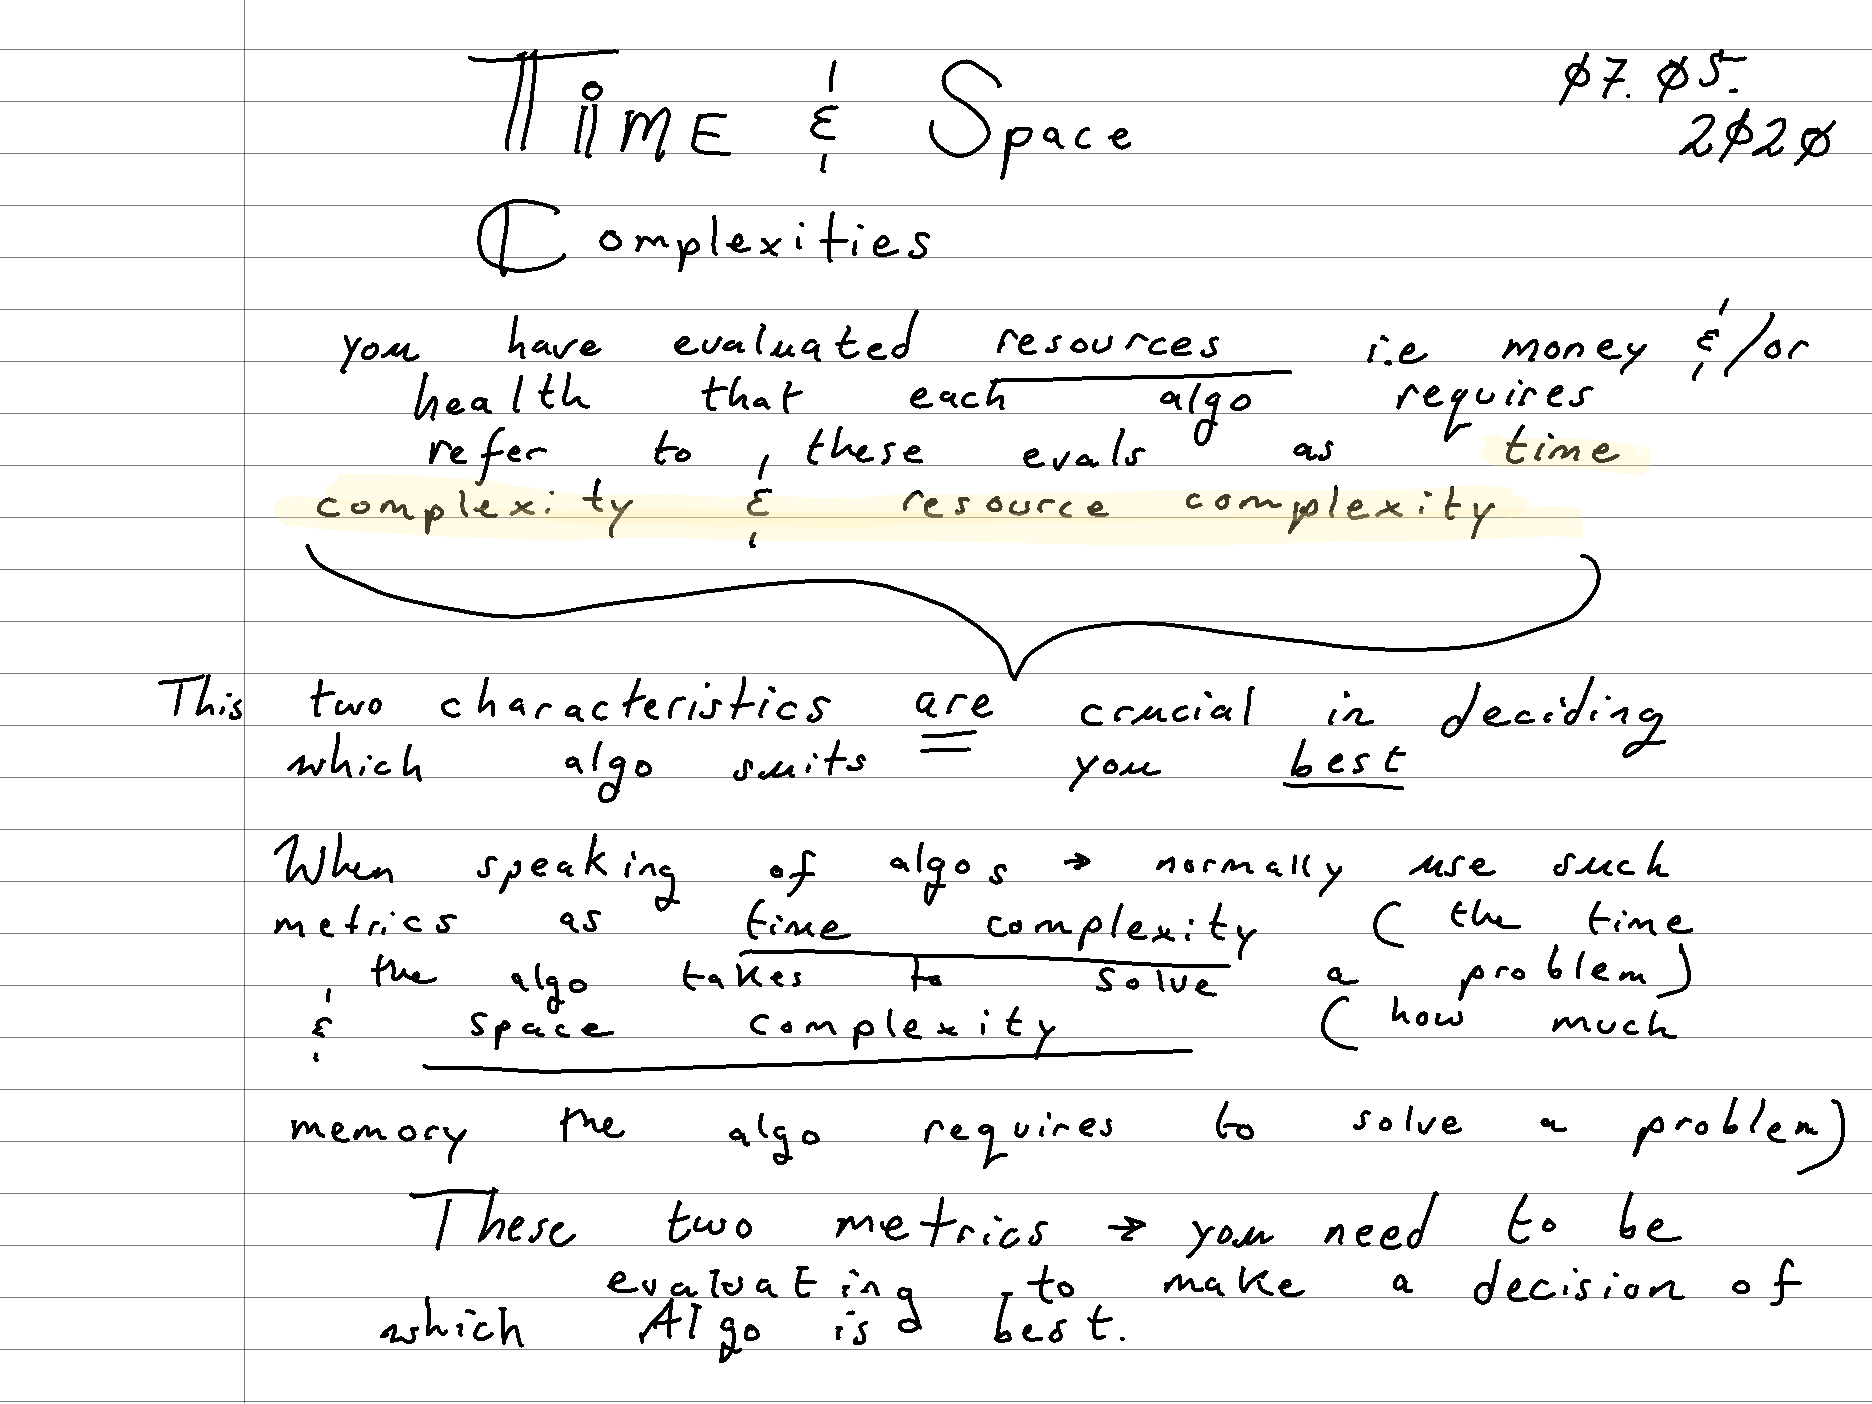 Time & Space
07.05.
2020
Complexities
you have evaluated resources i.e money &/or
health that each algo requires
refer to these evals as time
complexity & resource complexity
This two characteristics are crucial in deciding
which algo suits you best
When speaking of algos → normally use such
metrics as time complexity ( the time
the algo takes to solve a problem)
& space complexity ( how much
memory the algo requires to solve a problem)
These two metrics → you need to be
evaluating to make a decision of
which Algo is best.